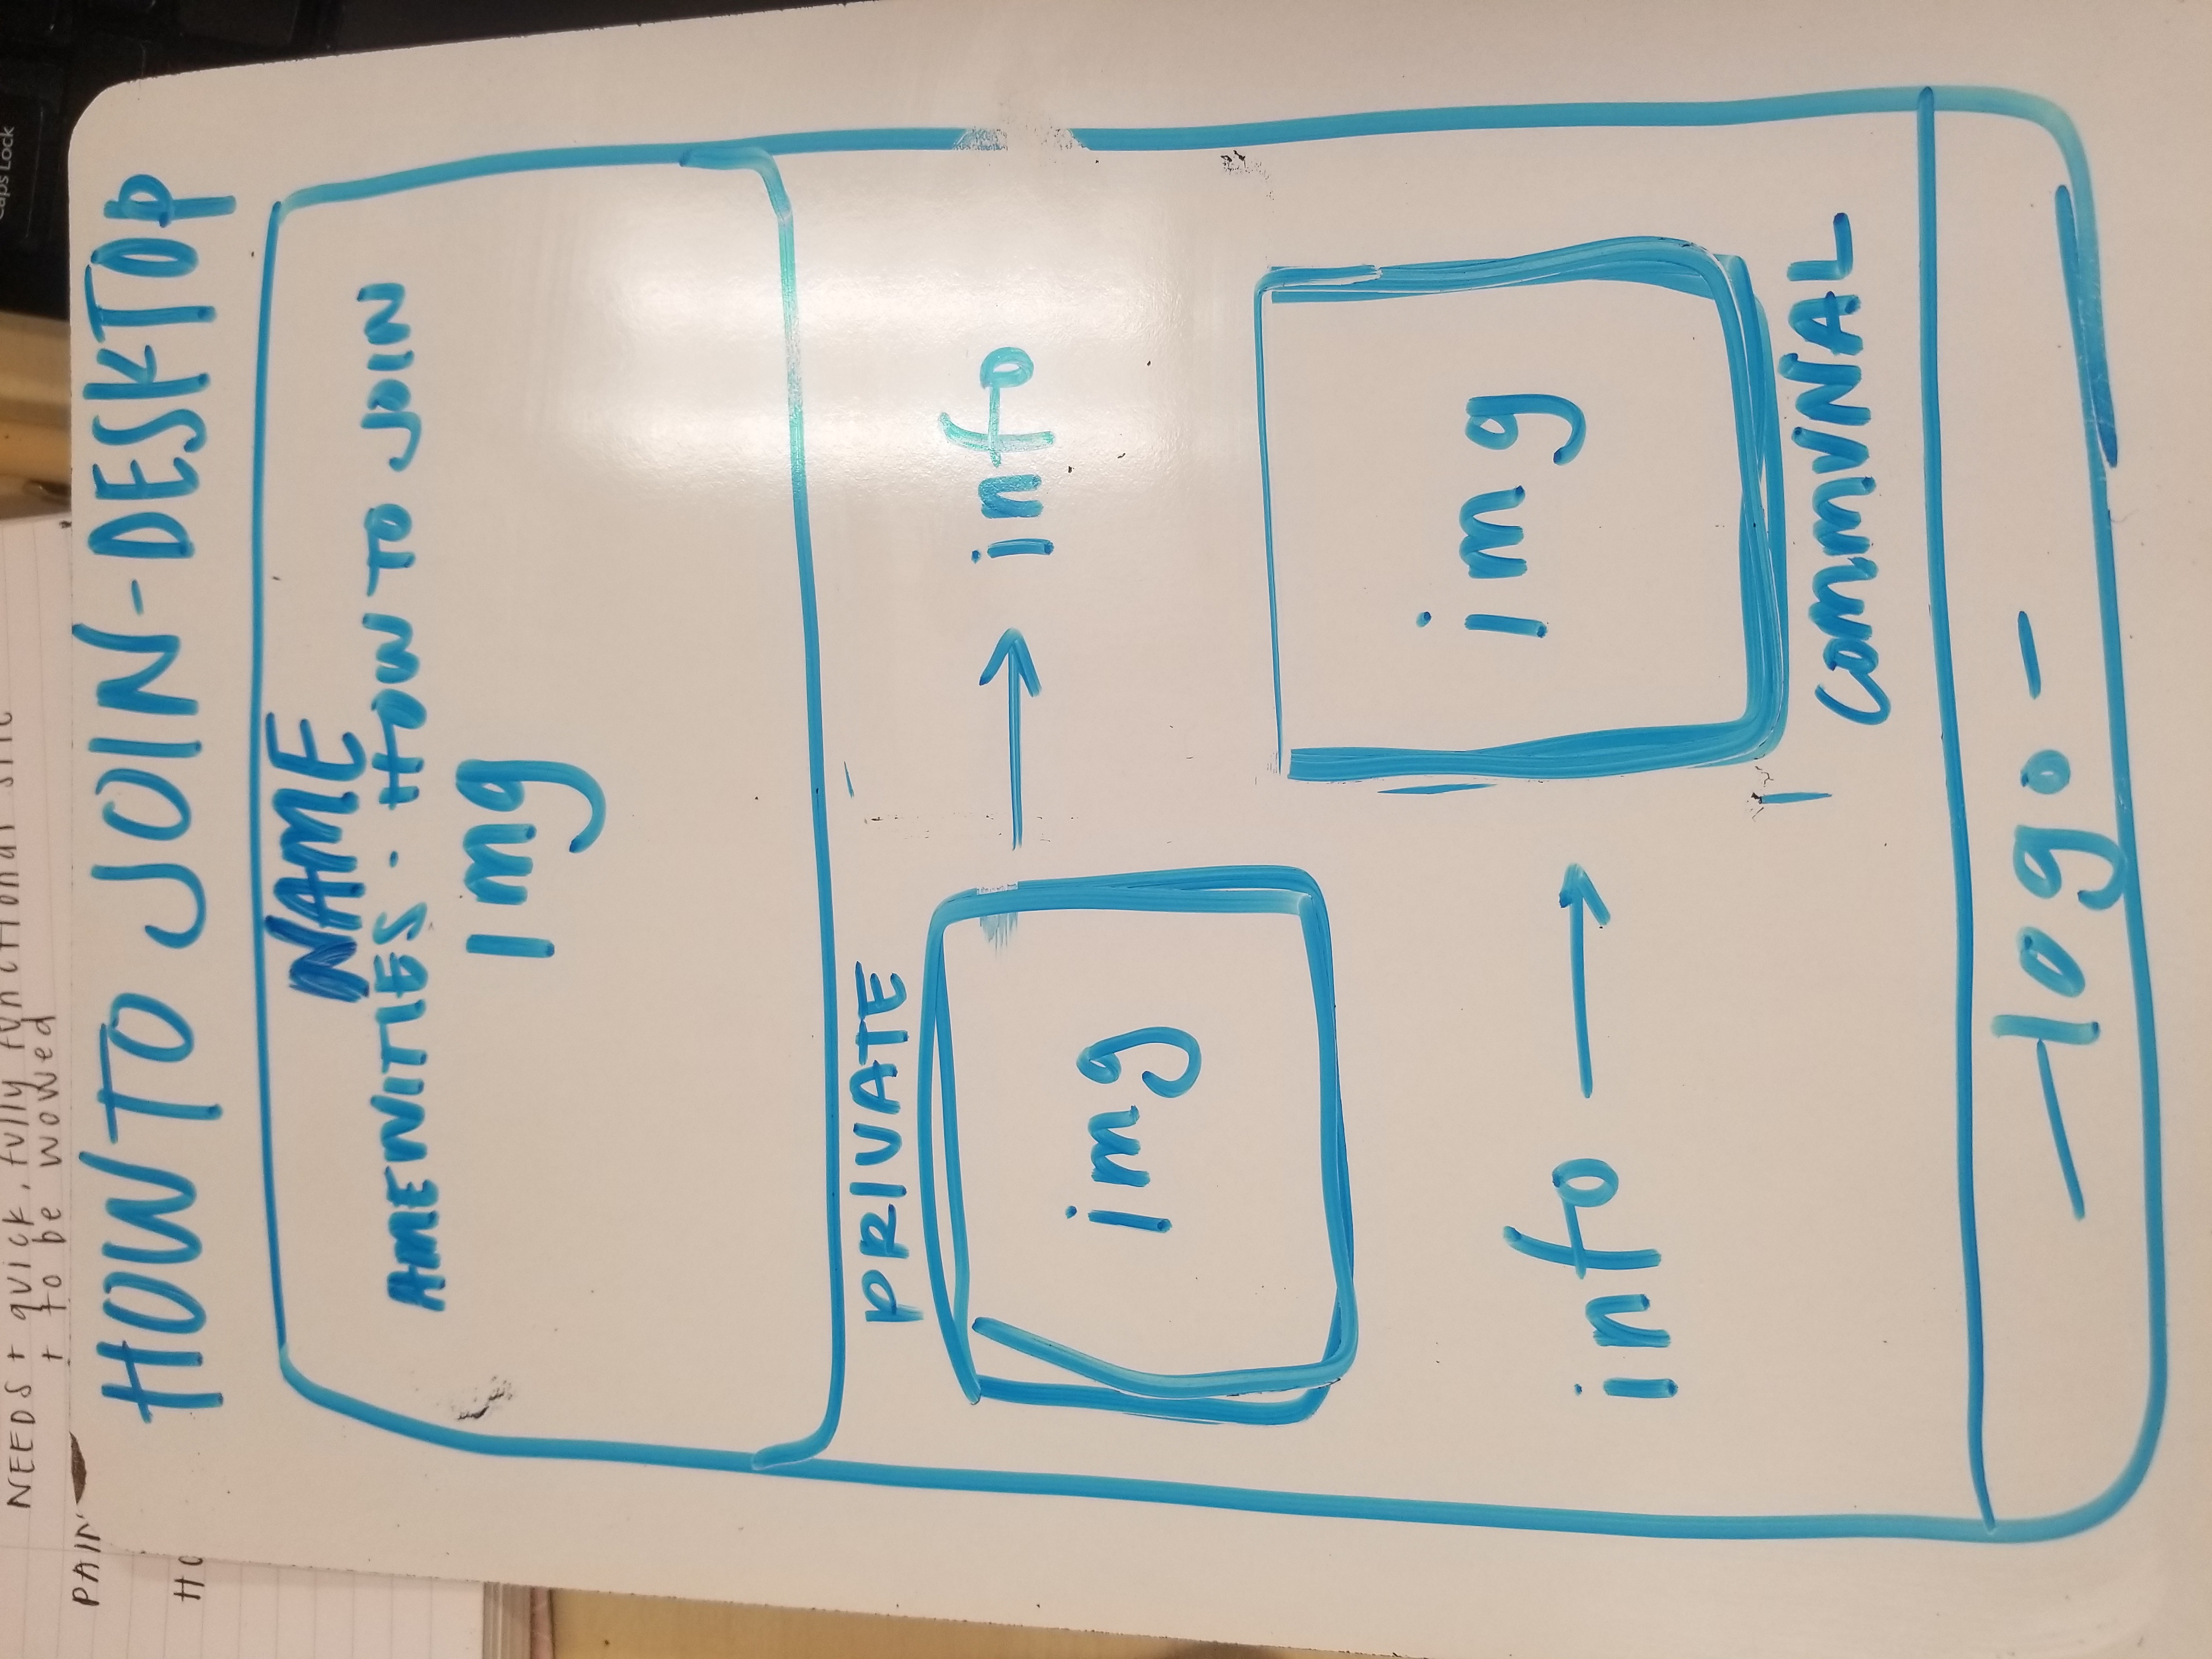 Caps Lock
NEEDS + quick, fully functional site
+ to be wowed
PAIN
HO
HOW TO JOIN-DESKTOP
NAME
AMENITIES · HOW TO JOIN
img
PRIVATE
img → info
info → img
COMMUNAL
-logo-